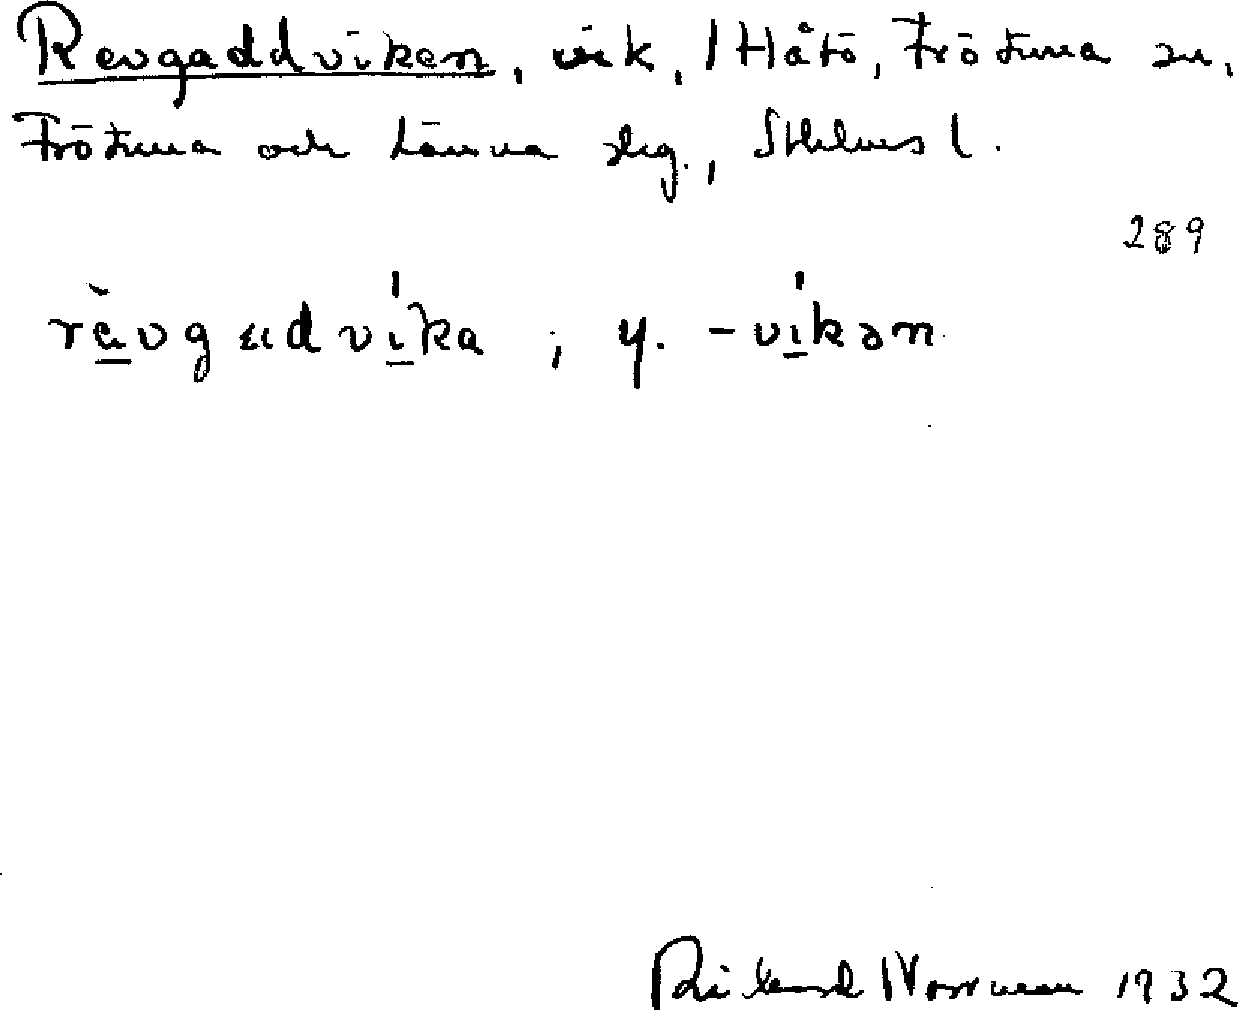 Revgaddviken, vik, Håtö, Frötuna sn,
Frötuna och Länna slg., Sthlms l.
289
rävgadvika ; y. -vikən
Rikard Norrman 1932